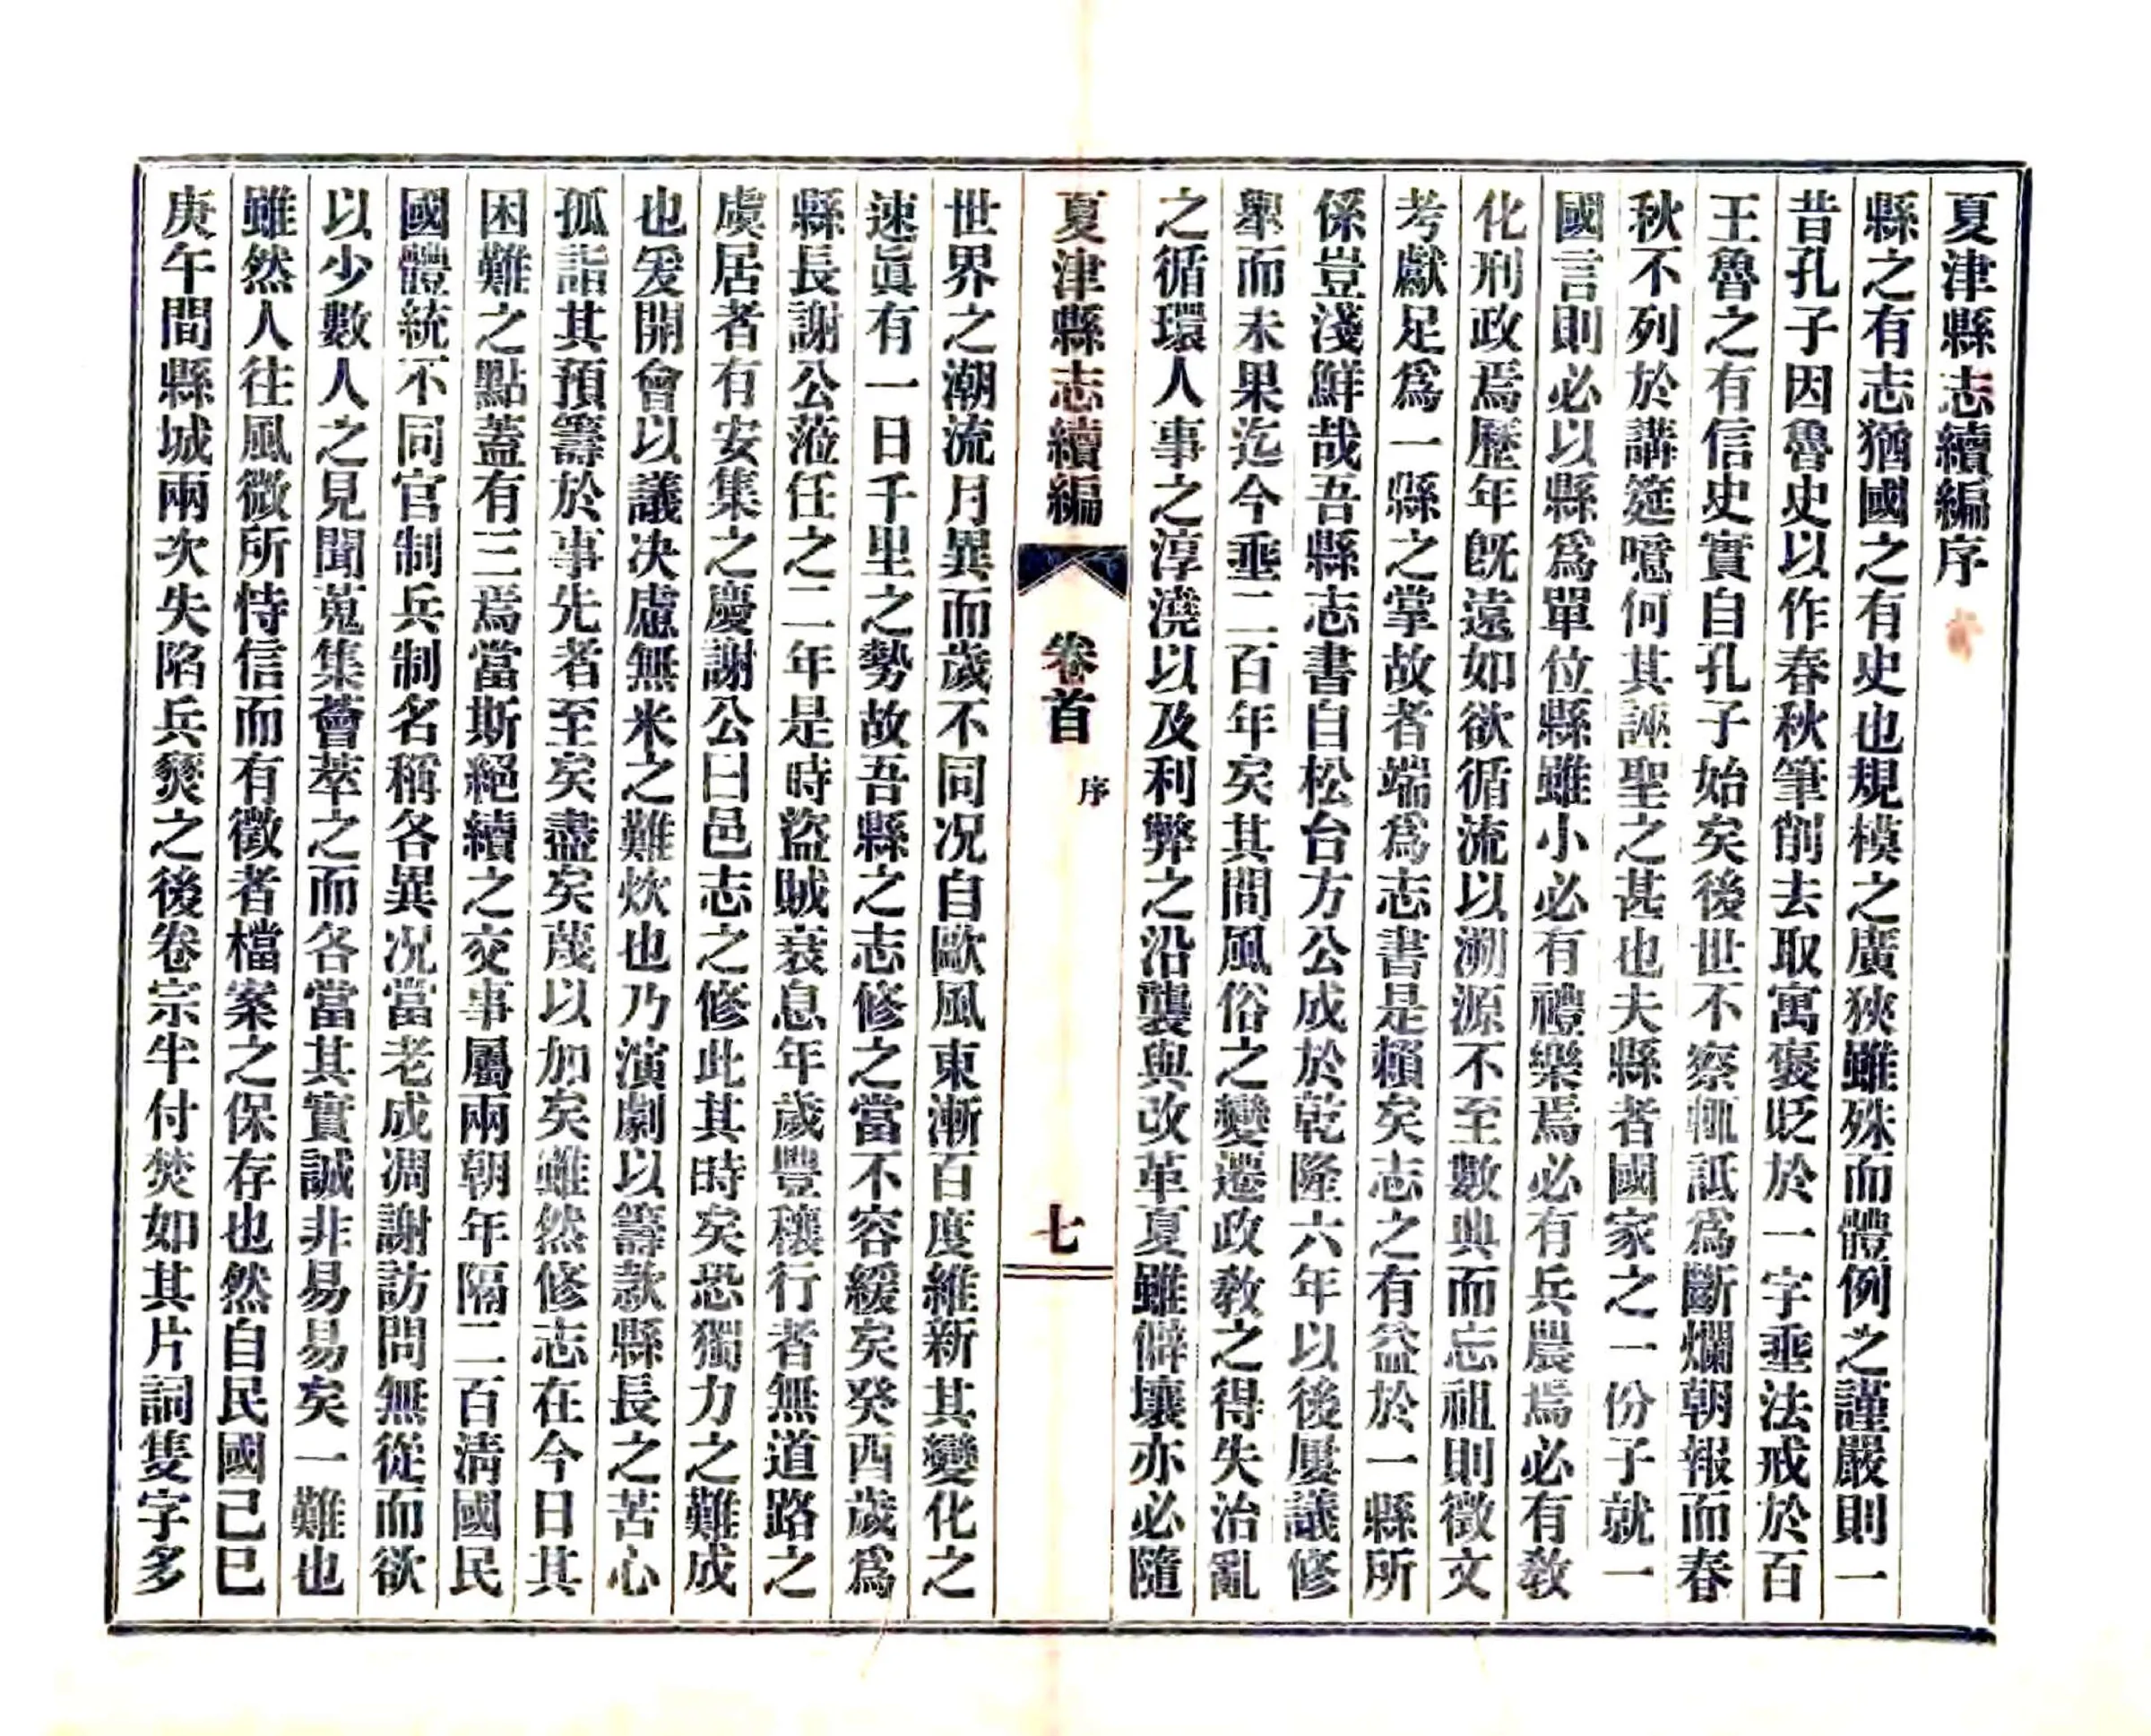 夏津縣志續編序
縣之有志猶國之有史也規模之廣狹雖殊而體例之謹嚴則一
昔孔子因魯史以作春秋筆削去取寓褒貶於一字垂法戒於百
王魯之有信史實自孔子始矣後世不察輒詆爲斷爛朝報而春
秋不列於講筵噫何其誣聖之甚也夫縣者國家之一份子就一
國言則必以縣爲單位縣雖小必有禮樂焉必有兵農焉必有敎
化刑政焉歷年旣遠如欲循流以溯源不至數典而忘祖則徵文
考獻足爲一縣之掌故者端爲志書是賴矣志之有益於一縣所
係豈淺鮮哉吾縣志書自松台方公成於乾隆六年以後屢議修
舉而未果迄今垂二百年矣其間風俗之變遷政敎之得失治亂
之循環人事之淳澆以及利弊之沿襲與改革夏雖僻壤亦必隨
夏津縣志續編
卷首
序
七
世界之潮流月異而歲不同况自歐風東漸百度維新其變化之
速眞有一日千里之勢故吾縣之志修之當不容緩矣癸酉歲爲
縣長謝公蒞任之二年是時盜賊衰息年歲豐穰行者無道路之
虞居者有安集之慶謝公曰邑志之修此其時矣恐獨力之難成
也爰開會以議决慮無米之難炊也乃演劇以籌款縣長之苦心
孤詣其預籌於事先者至矣盡矣蔑以加矣雖然修志在今日其
困難之點蓋有三焉當斯絕續之交事屬兩朝年隔二百淸國民
國體統不同官制兵制名稱各異况當老成凋謝訪問無從而欲
以少數人之見聞蒐集薈萃之而各當其實誠非易易矣一難也
雖然人往風微所恃信而有徵者檔案之保存也然自民國己巳
庚午間縣城兩次失陷兵燹之後卷宗半付焚如其片詞隻字多